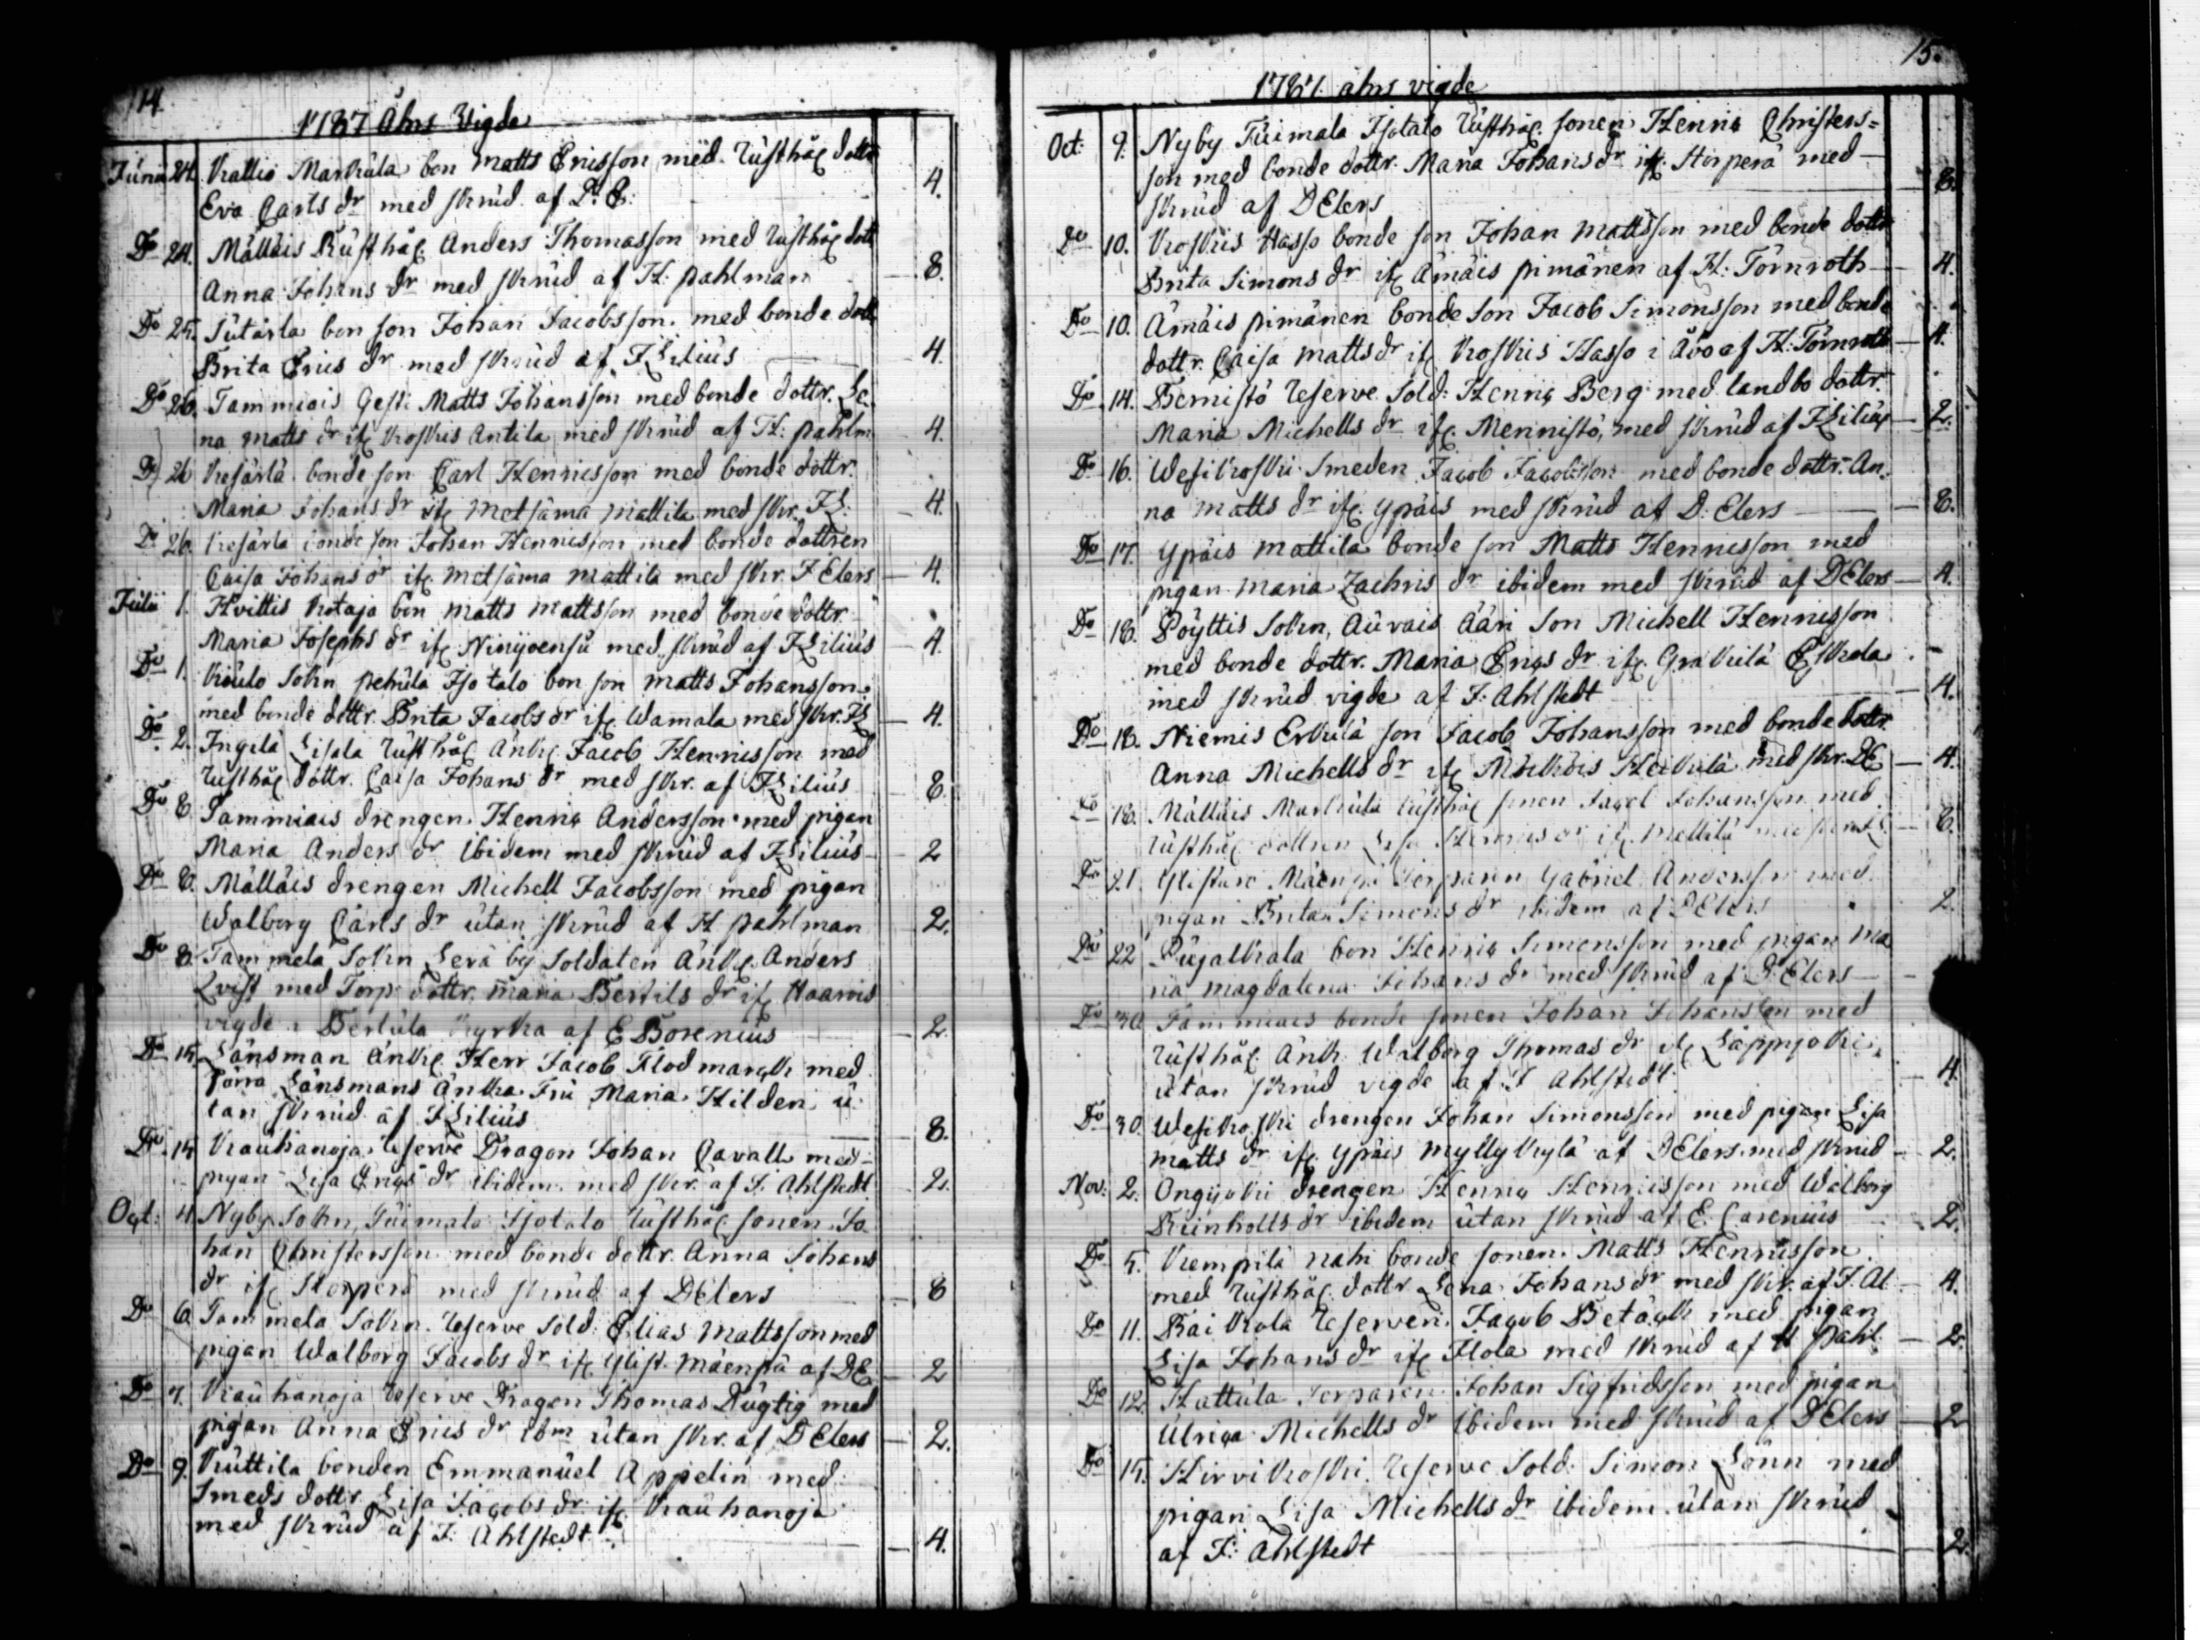 14.
1787 Åhrs Vigde
Junii 24. Kallio Markula bon Matts Ericsson med Rusthåll dottr 4.
Eva Carls dr med skrud af D. E.
Do 24. Mälläis Rusthåll Anders Thomasson med rusthåll dottr
Anna Johans dr med skrud af H: Pahlman 8.
Do 25. Sutarla bon son Johan Jacobsson med bonde dottr
Brita Erics dr med skrud af F Lilius 4.
Do 26. Tammiais Gest. Matts Johansson med bonde dottr. Le-
na Matts dr ifr Koskis Antila med skrud af H: Pahlm 4.
Do 26 bonde son Carl Henricsson med bonde dottr.
Maria Johans dr ifr Metsäma Mattila med skr. FL. 4.
Do 26. bonde son Johan Henricsson med bonde dottren
Caisa Johans dr ifr Metsäma Mattila med skr. F Elers 4.
Julii 1. Hvittis Kataja bon Matts Mattsson med bonde dottr.
Maria Josephs dr ifr Ninijoensu med skrud af F Lilius 4.
Do 1. Kiulo Sokn Pehula Isotalo bon son Matts Johansson
med bonde dottr. Brita Jacobs dr ifr Wamala med skr. FL 4.
Do 2. Ingilä Lisala rusthåll änkl Jacob Henricsson med
rusthåll dottr. Caisa Johans dr med skr. af F Lilius 8.
Do 8 Tammiais drengen Henric Andersson med pigan
Maria Anders dr ibidem med skrud af F Lilius 2
Do 8. Mälläis drengen Michell Jacobsson med pigan
Walborg Carls dr utan skrud af H Pahlman 2.
Do 8 Tammela Sokn Lerä by Soldaten Änkl. Anders
Qvist med Torp dottr. Maria Bertils dr ifr Haarois
vigde i Bertula Kyrka af E Borenius 2.
Do 15. Länsman Änkl Herr Jacob Flodmarck med
förra Länsmans Änka Fru Maria Hilden u-
tan skrud af F Lilius 8.
Do 15 Krauhanoja Reserve Dragon Johan Cavall med
pigan Lisa Erics dr ibidem med skr. af F. Ahlstedt 2.
Oct: 4. Nyby Sokn, Tuimala Isotalo rusthåll sonen Jo-
han Christersson med bonde dottr. Anna Johans
dr ifr Horperä med skrud af D Elers 8
Do 6. Tammela Sokn. Reserve Sold. Elias Mattsson med
pigan Walborg Jacobs dr ifr Ylist. Mäenpä af DE 2
Do 7. Krauhanoja Reserve Dragon Thomas Dugtig med
pigan Anna Erics dr ibm utan skr. af D Elers 2.
Do 9. Kuttila bonden Emmanuel Appelin med
Smeds dottr Lisa Jacobs dr ifr Krauhanoja
med skrud af F: Ahlstedt 4.
15.
1787. åhrs vigde
Oct: 9. Nyby Tuimala Isotalo rusthåll. sonen Henric Christers-
son med bonde dottr. Maria Johans dr ifr Horperä med
skrud af D Elers 8.
Do 10. Koskis Hasso bonde son Johan Mattsson med bonde dottr
Brita Simons dr ifr Ämäis Pimänen af H: Törnroth 4.
Do 10. Ämäis Pimänen bonde son Jacob Simonsson med bonde
dottr. Caisa Matts dr ifr Koskis Hasso i Åbo af H: Törnroth 4.
Do 14. Bemistö Reserve Sold: Henric Berg med landbo dottr.
Maria Michells dr ifr. Mennistö, med skrud af F Lilius 2.
Do 16. Wesikoski Smeden Jacob Jacobsson med bonde dottr. An-
na Matts dr ifr. Ypäis med skrud af D. Elers 8.
Do 17. Ypäis Mattila bonde son Matts Henricsson med
pigan Maria Zachris dr ibidem med skrud af D Elers 4.
Do 18. Pöyttis Sokn, Auvais Ääri Son Michell Henricsson
med bonde dottr. Maria Erics dr ifr. Eskola
med skrud vigde af F: Ahlstedt 4.
Do 18. Niemis Erkulä son Jacob Johansson med bonde dottr
Anna Michells dr ifr Mälkiöis Heikulä med skr. DE 4.
Do 18. Mälläis Markula rusthåll sonen Johansson med
rusthåll dottren Lisa Henrics dr ifr. Mellilä 8.
Do 21. Ylistaro Mäenpä Torparen Gabriel Andersson med
pigan Brita Simons dr ibidem af D Elers 2.
Do 22 Pugalkala bon Henric Simonsson med pigan Ma-
ria Magdalena Johans dr med skrud af D. Elers
Do 30 Tammiais bonde sonen Johan Johansson med
rusthåll Änk. Walborg Thomas dr ifr Läppjoki
utan skrud vigde af F Ahlstedt 4.
Do 30. Wesikoski drengen Johan Simonsson med pigan Lisa
Matts dr ifr. Ypäis Myllykylä af D Elers med skrud 2.
Nov: 2. Ongijoki drengen Henric Henricsson med Walborg
Reinholts dr ibidem utan skrud af E. Carenius 2.
Do 5. Krempilä Nahi bonde sonen Matts Henricsson
med rusthåll dottr Lena Johans dr med skr. af F. Al 4.
Do 11. Raikola Reserven Jacob Betäck med pigan
Lisa Johans dr ifr Flola med skrud af H Pahl 2.
Do 12. Hattula Torparen Johan Sigfridsson med pigan
Ulrica Michells dr ibidem med skrud af D Elers 2
Do 15. Hirvikoski Reserve Sold. Simon Lönn med
pigan Lisa Michells dr ibidem utan skrud
af F: Ahlstedt 2.